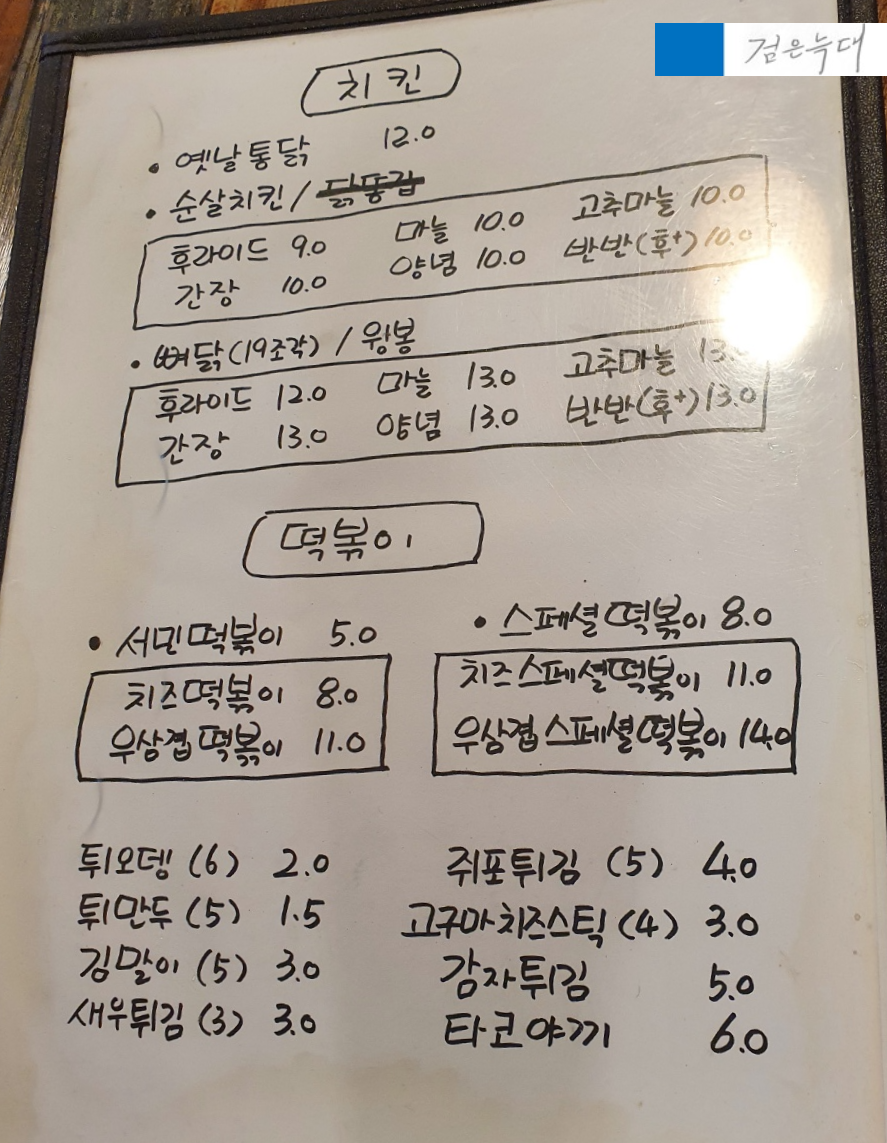 검은늑대
치킨
• 옛날통닭 12.0
• 순살치킨 / 닭똥집
후라이드 9.0 마늘 10.0 고추마늘 10.0
간장 10.0 양념 10.0 반반(후+) 10.0
• 뼈닭(19조각) / 윙봉
후라이드 12.0 마늘 13.0 고추마늘
간장 13.0 양념 13.0 반반(후+) 13.0
떡볶이
• 서민떡볶이 5.0 • 스페셜떡볶이 8.0
치즈떡볶이 8.0 치즈스페셜떡볶이 11.0
우삼겹떡볶이 11.0 우삼겹스페셜떡볶이 14.0
튀오뎅 (6) 2.0 쥐포튀김 (5) 4.0
튀만두 (5) 1.5 고구마치즈스틱 (4) 3.0
김말이 (5) 3.0 감자튀김 5.0
새우튀김 (3) 3.0 타코야끼 6.0